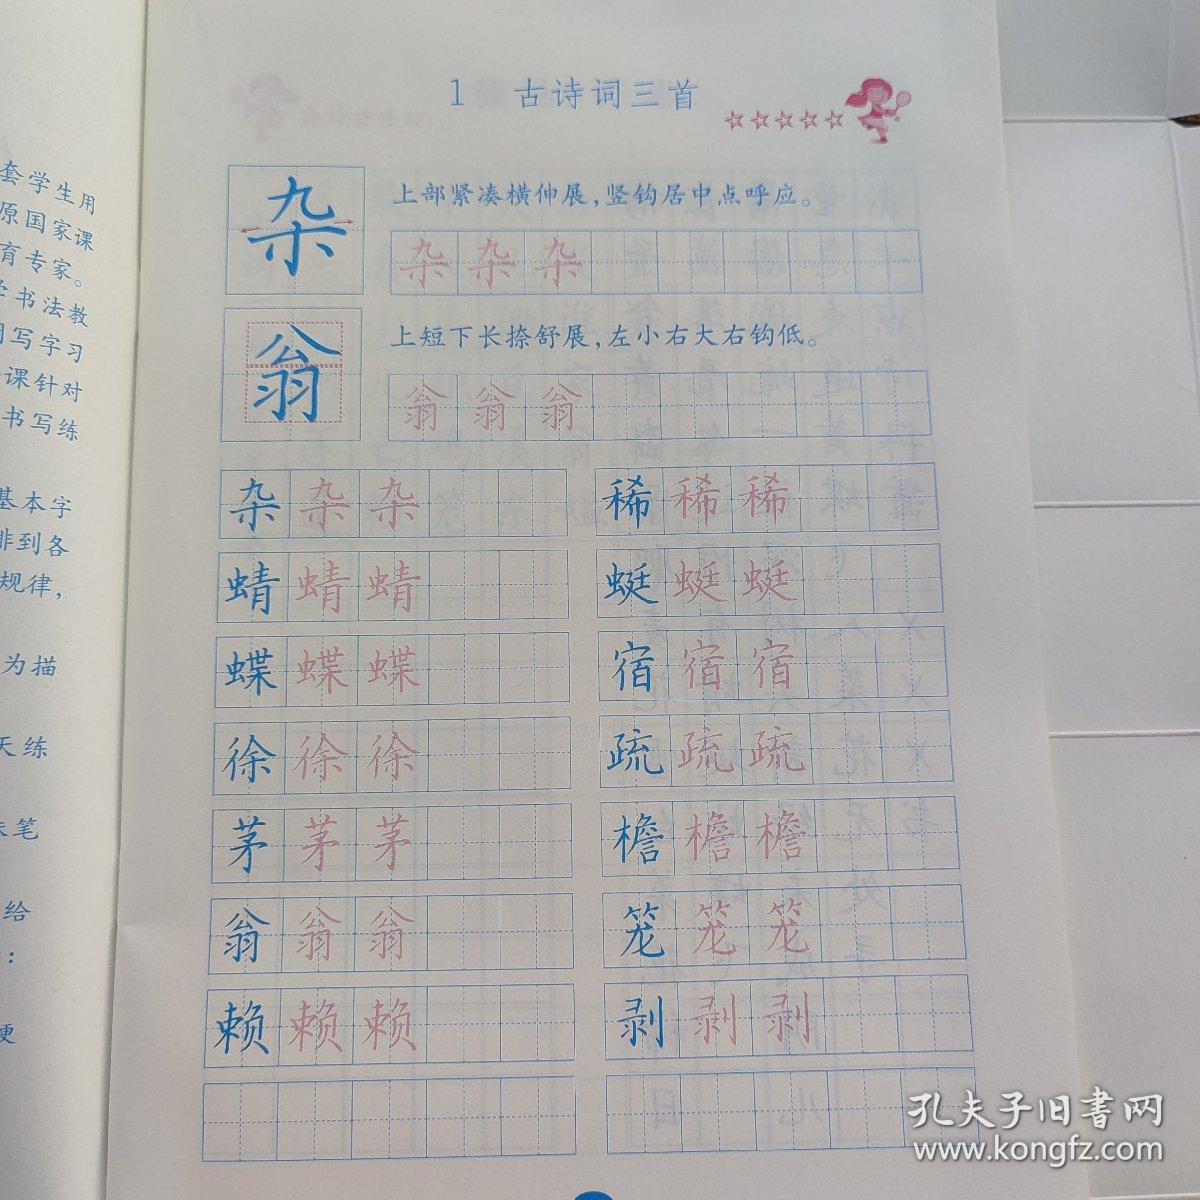 套学生用
原国家课
育专家。
学书法教
用写字习
课针对
书写练
基本字
排到各
规律，
为描
天练
朱笔
给
：
硬
1 古诗词三首
☆☆☆☆☆
杂
上部紧凑横伸展，竖钩居中点呼应。
杂 杂 杂
翁
上短下长捺舒展，左小右大右钩低。
翁 翁 翁
杂 杂 杂 稀 稀 稀
蜻 蜻 蜻 蜓 蜓 蜓
蝶 蝶 蝶 宿 宿 宿
徐 徐 徐 疏 疏 疏
茅 茅 茅 檐 檐 檐
翁 翁 翁 笼 笼 笼
赖 赖 赖 剥 剥 剥
孔夫子旧书网
www.kongfz.com